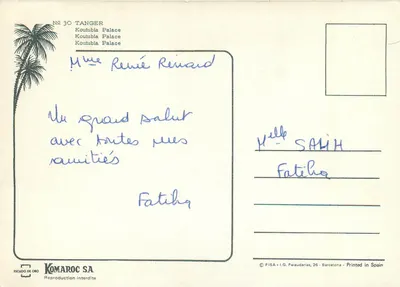 Nº 30 TANGER
Koutubia Palace
Koutubia Palace
Koutubia Palace
Mme Renée Renard
Un grand salut
avec toutes mes
amitiés
Fatiha
Melle SALIH
Fatiha
ESCUDO DE ORO
KOMAROC SA
Reproduction interdite
© FISA - I.G. Palaudarias, 26 - Barcelona - Printed in Spain